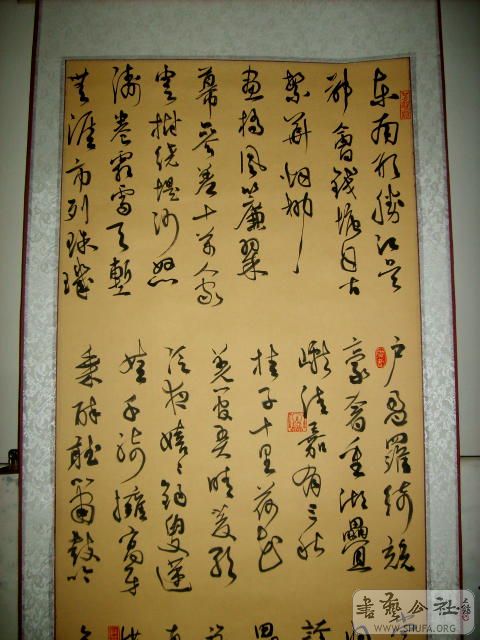 东南形勝江吴
都會錢塘自古
繁華烟柳
畫橋風簾翠
幕參差十萬人家
雲樹繞堤沙怒
濤卷霜雪天塹
無涯市列珠璣
户盈羅綺競
豪奢重湖疊
巘清嘉有三秋
桂子十里荷花
羌管弄晴菱歌
泛夜嬉嬉釣叟蓮
娃千騎擁高牙
乘醉聽簫鼓吟
書藝公社
WWW.SHUFA.ORG